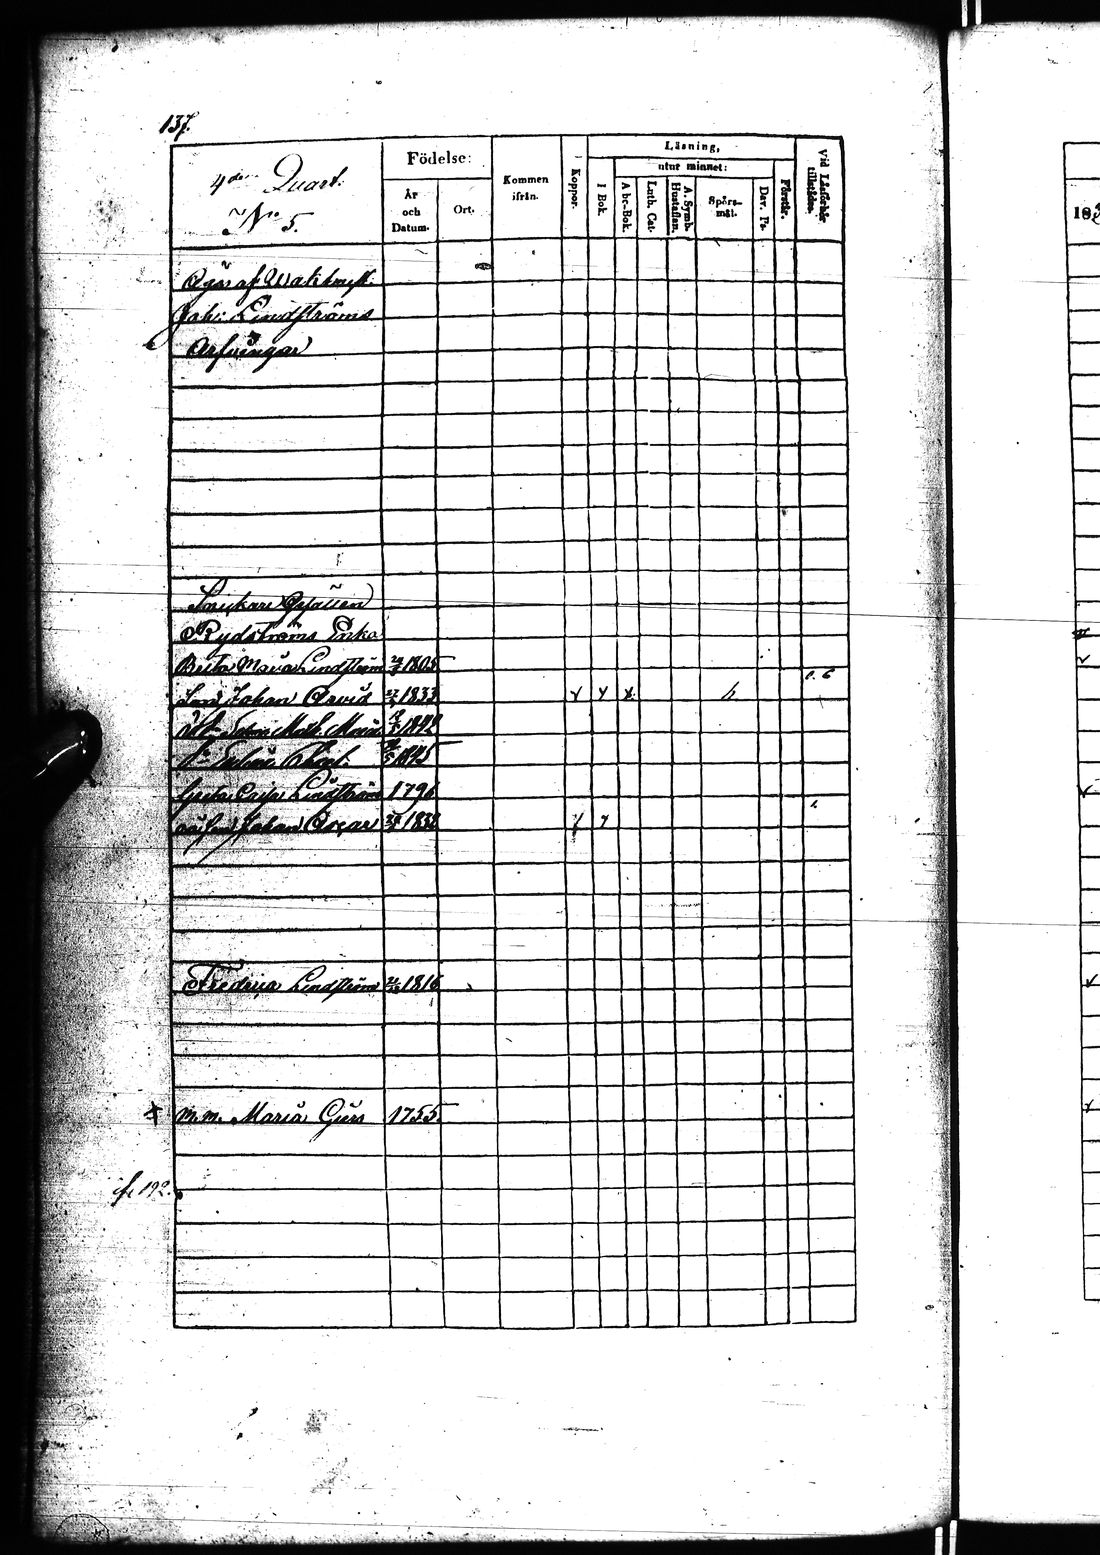 137.
4de Quart.
No 5.
Födelse:
År och Datum.
Ort.
Kommen ifrån.
Koppor.
Läsning,
I Bok.
utur minnet:
Abc-Bok.
Luth. Cat.
A. Symb. Hustaflan.
Spörs-mål.
Dav. Ps.
Förstår.
Vid Läsförhör tillstädes.
18
Äges af Waktmst.
Joh: Lindströms
Arfvingar
Snickare Gesällen
Rydströms Enka
Brita Maria Lindström 1805
Son Johan Arvid 1833 b
Maria 1842
1845
Greta Cajsa Lindström 1796
Johan Oscar 1838
Fredrica Lindström 1816
m.m. Maria Gers 1755.
fr 192.